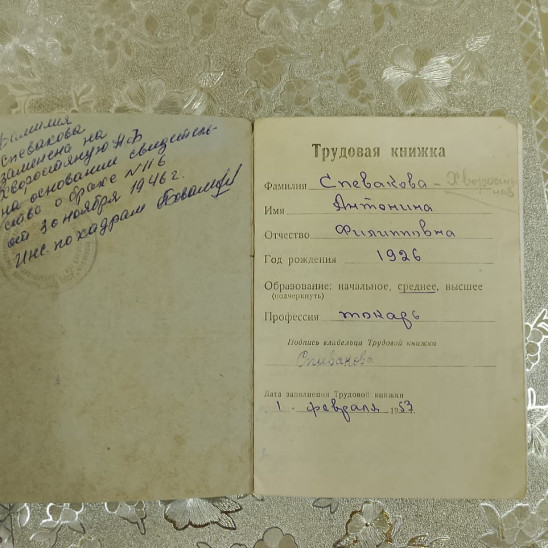 Фамилия
Спевакова
заменена на
Хворостяную А.Ф
на основании свидетель-
ство о браке N 116
от 30 ноября 1946 г.
Инс. по кадрам
Трудовая книжка
Фамилия Спевакова -
Имя Антонина
Отчество Филипповна
Год рождения 1926
Образование: начальное, среднее, высшее
(подчеркнуть)
Профессия токарь
Подпись владельца Трудовой книжки
Спивакова
Дата заполнения Трудовой книжки
1 февраля 1957